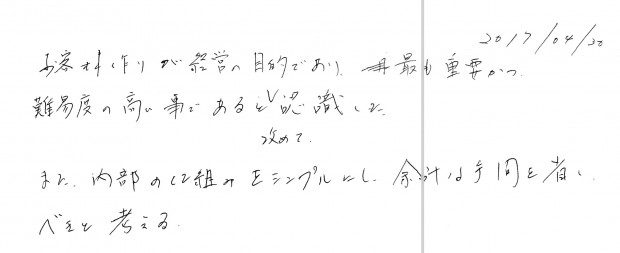 2017/04/30
お客様作りが経営の目的であり、最も重要かつ
難易度の高い事であると認識した。
改めて
また、内部の仕組みをシンプルにし、余計な手間を省く
べきと考える。